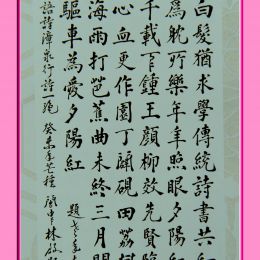 白髮猶求學傳統詩書共
為躭所樂年年照眼夕陽紅
千載下鍾王顏柳效先賢臨
心血更作園丁耕硯田荔
海雨打芭蕉曲未終三月
驅車為愛夕陽紅 題老年
語詩漳泉行詩 癸未年芒種 林